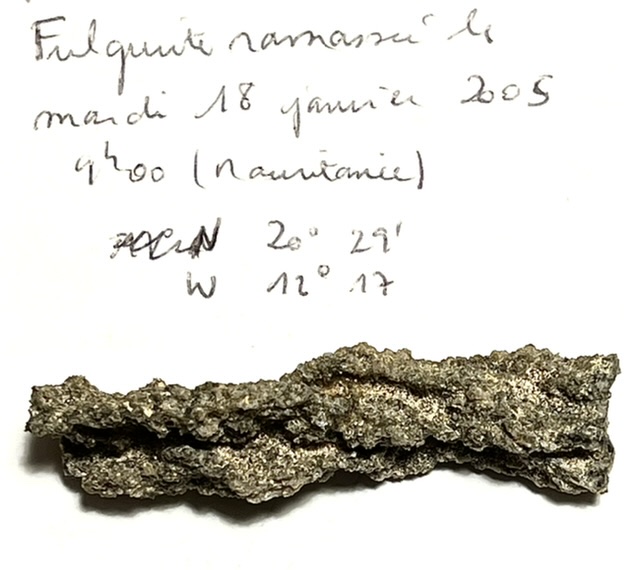 Fulgurite ramassée le
mardi 18 janvier 2005
9h00 (Mauritanie)
N 20° 29'
W 12° 17